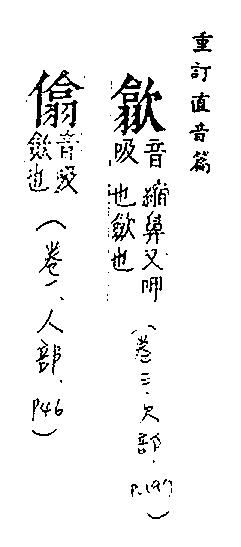 重訂直音篇
歙
音縮鼻又呷
吸也歛也
(卷三、欠部、P.197)
㒆
音吸
歛也
(卷一、人部、P46)